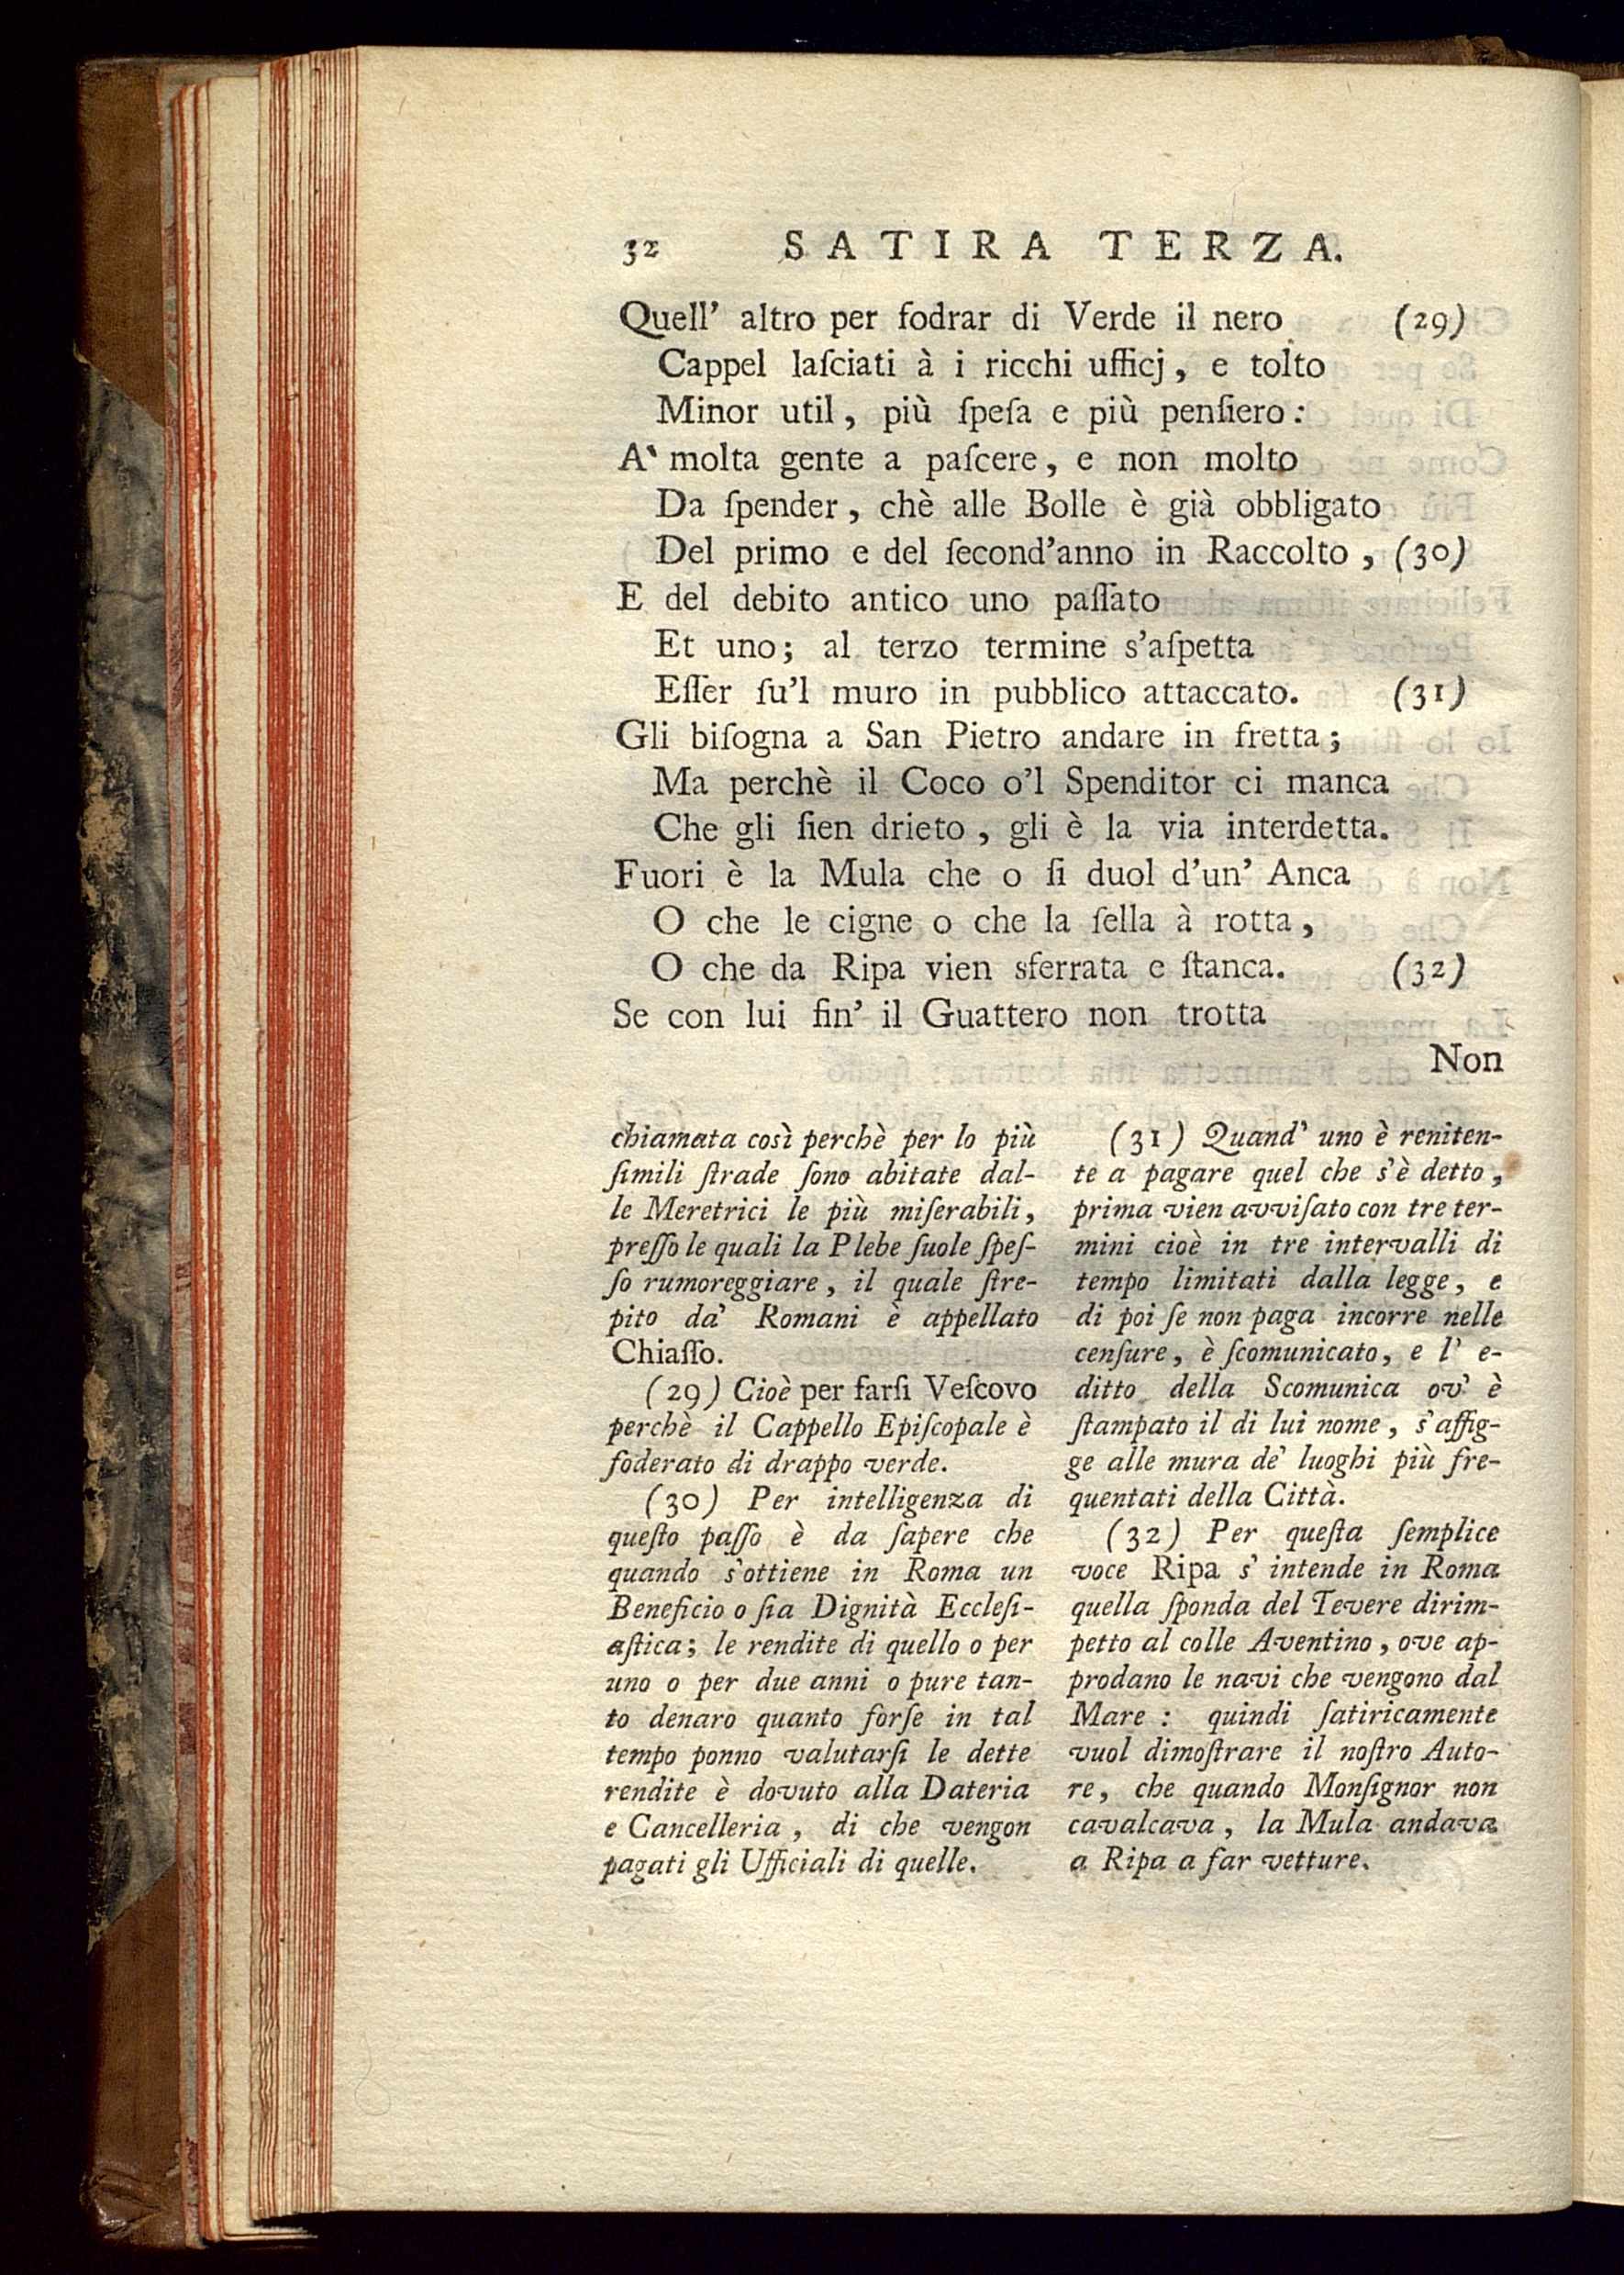 32 SATIRA TERZA.
Quell' altro per fodrar di Verde il nero (29)
Cappel laſciati à i ricchi ufficj, e tolto
Minor util, più ſpeſa e più penſiero:
A' molta gente a paſcere, e non molto
Da ſpender, chè alle Bolle è già obbligato
Del primo e del ſecond'anno in Raccolto, (30)
E del debito antico uno paſſato
Et uno; al terzo termine s'aſpetta
Eſſer ſu'l muro in pubblico attaccato. (31)
Gli biſogna a San Pietro andare in fretta;
Ma perchè il Coco o'l Spenditor ci manca
Che gli ſien drieto, gli è la via interdetta.
Fuori è la Mula che o ſi duol d'un' Anca
O che le cigne o che la ſella à rotta,
O che da Ripa vien sferrata e ſtanca. (32)
Se con lui fin' il Guattero non trotta
Non
chiamata così perchè per lo più
ſimili ſtrade ſono abitate dal-
le Meretrici le più miſerabili,
preſſo le quali la Plebe ſuole ſpeſ-
ſo rumoreggiare, il quale ſtre-
pito da' Romani è appellato
Chiaſſo.
(29) Cioè per farſi Veſcovo
perchè il Cappello Epiſcopale è
foderato di drappo verde.
(30) Per intelligenza di
queſto paſſo è da ſapere che
quando s'ottiene in Roma un
Beneficio o ſia Dignità Eccleſi-
aſtica; le rendite di quello o per
uno o per due anni o pure tan-
to denaro quanto forſe in tal
tempo ponno valutarſi le dette
rendite è dovuto alla Dateria
e Cancelleria, di che vengon
pagati gli Ufficiali di quelle.
(31) Quand' uno è reniten-
te a pagare quel che s'è detto,
prima vien avviſato con tre ter-
mini cioè in tre intervalli di
tempo limitati dalla legge, e
di poi ſe non paga incorre nelle
cenſure, è ſcomunicato, e l' e-
ditto della Scomunica ov' è
ſtampato il di lui nome, s'affig-
ge alle mura de' luoghi più fre-
quentati della Città.
(32) Per queſta ſemplice
voce Ripa s' intende in Roma
quella ſponda del Tevere dirim-
petto al colle Aventino, ove ap-
prodano le navi che vengono dal
Mare: quindi ſatiricamente
vuol dimoſtrare il noſtro Auto-
re, che quando Monſignor non
cavalcava, la Mula andava
a Ripa a far vetture.